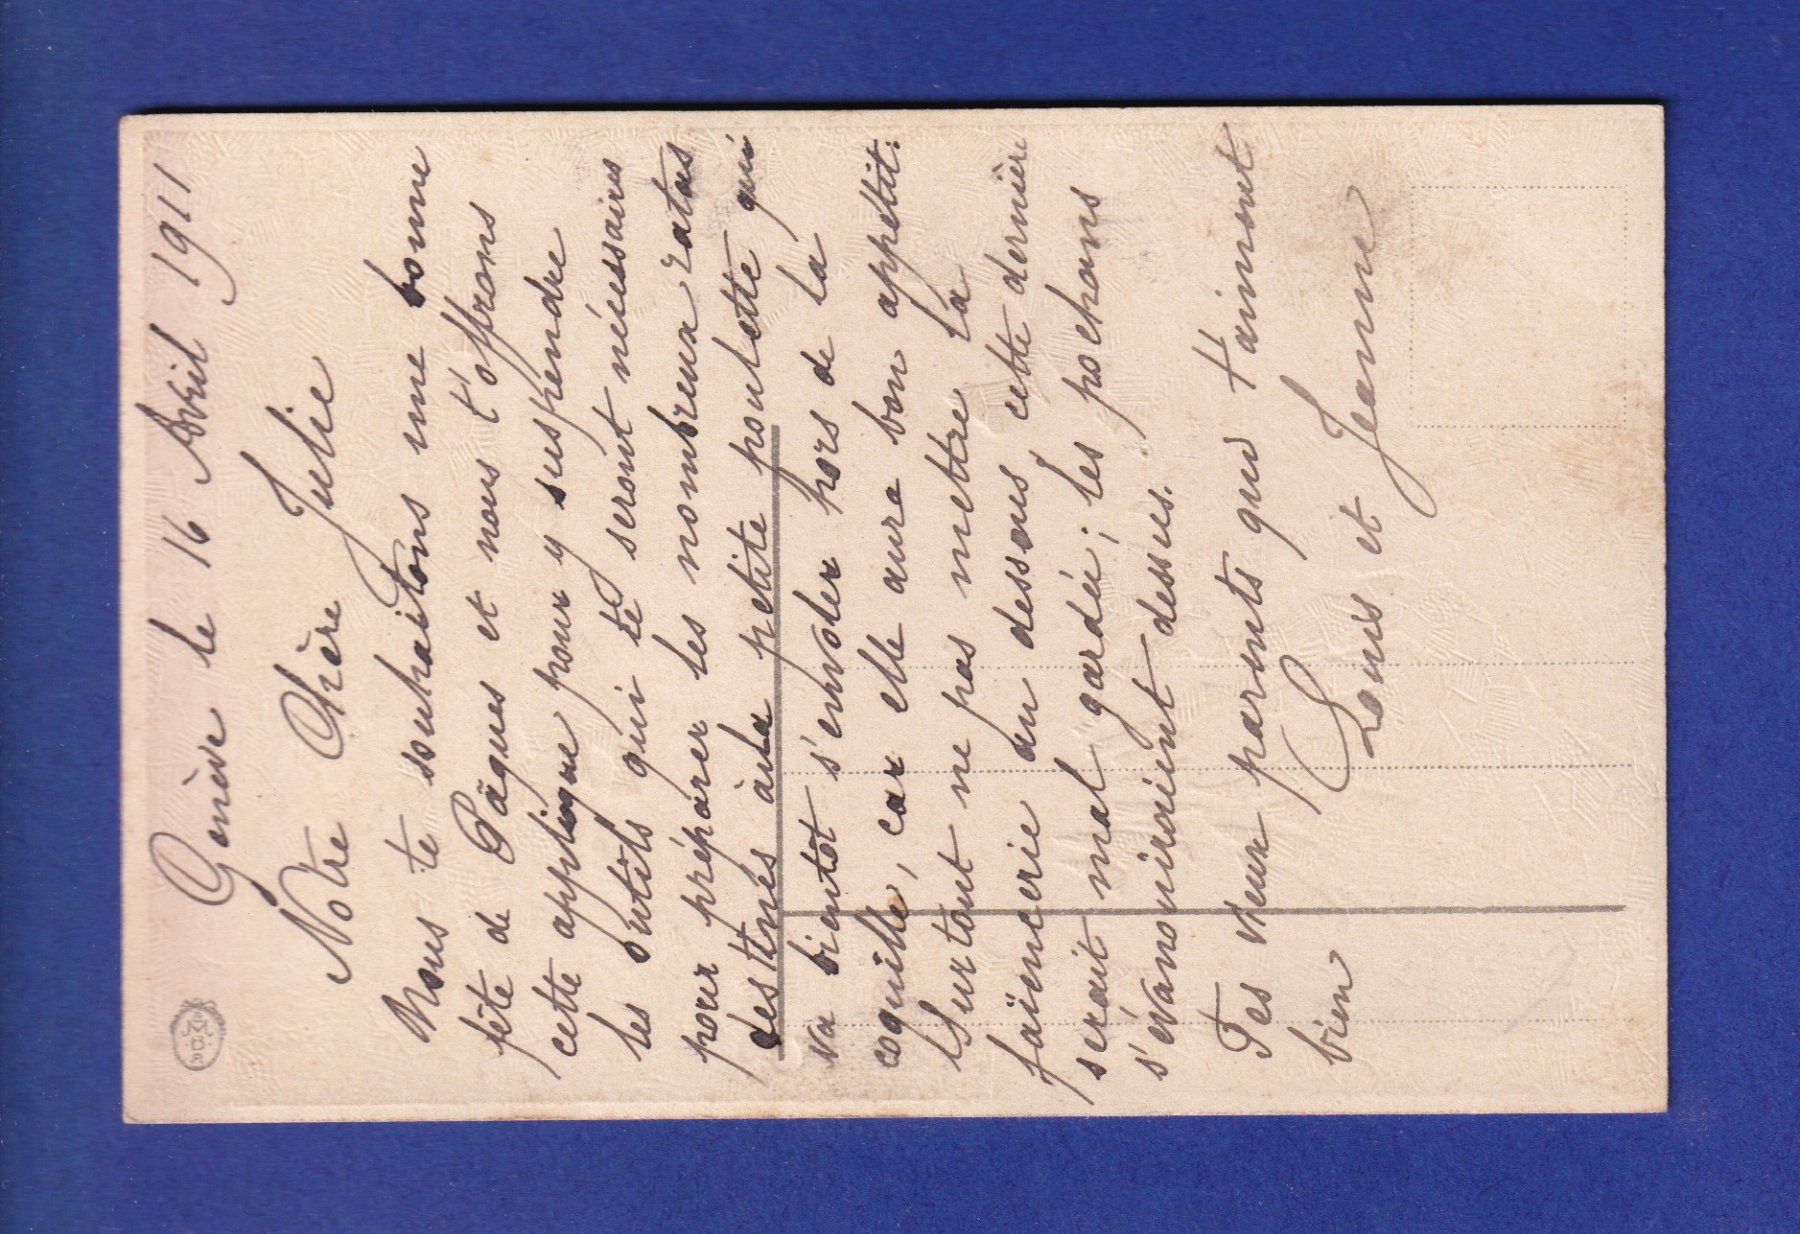 Genève le 16 Avril 1911
Notre Chère Julie
Nous te souhaitons une bonne
fête de Pâques et nous t'offrons
cette applique pour y suspendre
les outils qui te seront nécessaires
pour préparer les nombreux ratas
destinés à la petite poulette qui
va bientôt s'envoler hors de la
coquille, car elle aura bon appétit.
Surtout ne pas mettre la
faïencerie au dessous cette dernière
serait mal gardée; les pochons
s'évanouiroient dessus.
Tes vieux parents qui t'aiment
bien
Louis et Jeanne